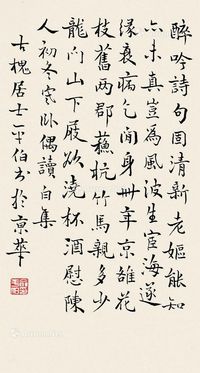 醉吟詩句固清新老嫗能知
亦未真豈為風波生宦海遂
緣衰病乞閒身卌年京雒花
枝舊兩郡蘇杭竹馬親多少
龍門山下屐欲澆杯酒慰陳
人初冬寒臥偶讀白集
古槐居士平伯書於京華